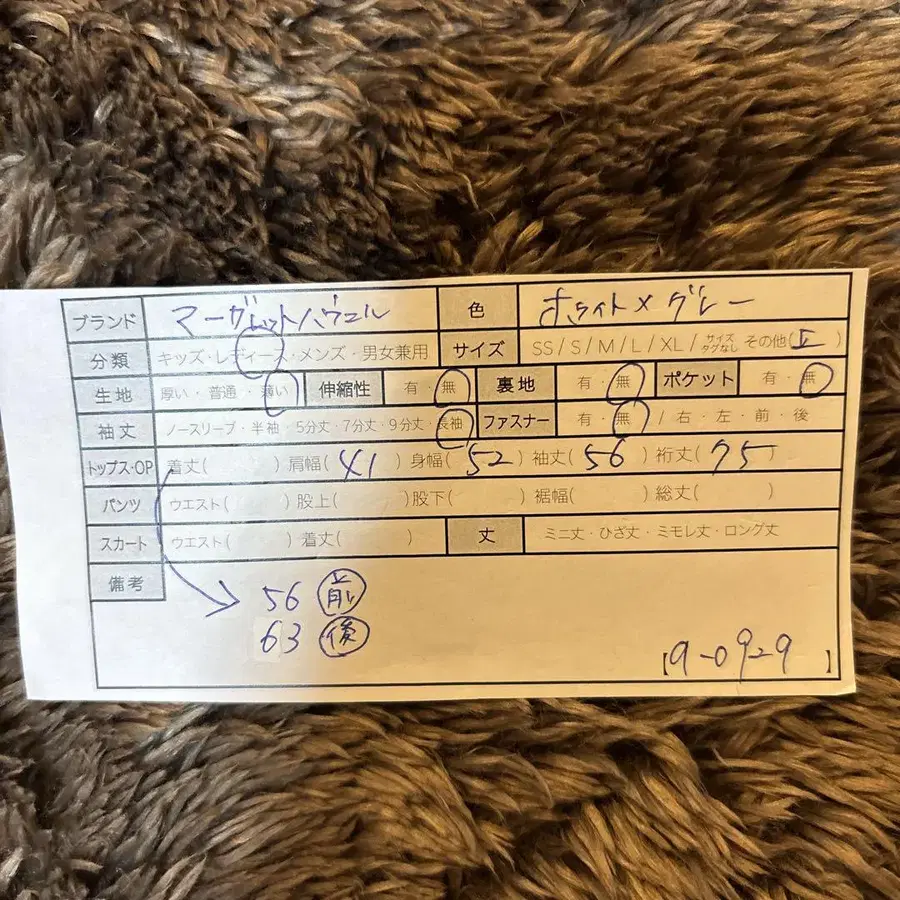 ブランド マーガレットハウエル 色 ホワイト×グレー
分類 キッズ・レディース・メンズ・男女兼用 サイズ SS/S/M/L/XL/サイズタグなし その他(II)
生地 厚い・普通・薄い 伸縮性 有・無 裏地 有・無 ポケット 有・無
袖丈 ノースリーブ・半袖・5分丈・7分丈・9分丈・長袖 ファスナー 有・無/右・左・前・後
トップス・OP 着丈( ) 肩幅(41) 身幅(52) 袖丈(56) 裄丈(75)
パンツ ウエスト( ) 股上( ) 股下( ) 裾幅( ) 総丈( )
スカート ウエスト( ) 着丈( ) 丈 ミニ丈・ひざ丈・ミモレ丈・ロング丈
備考
56 前
63 後
【9-09-9】